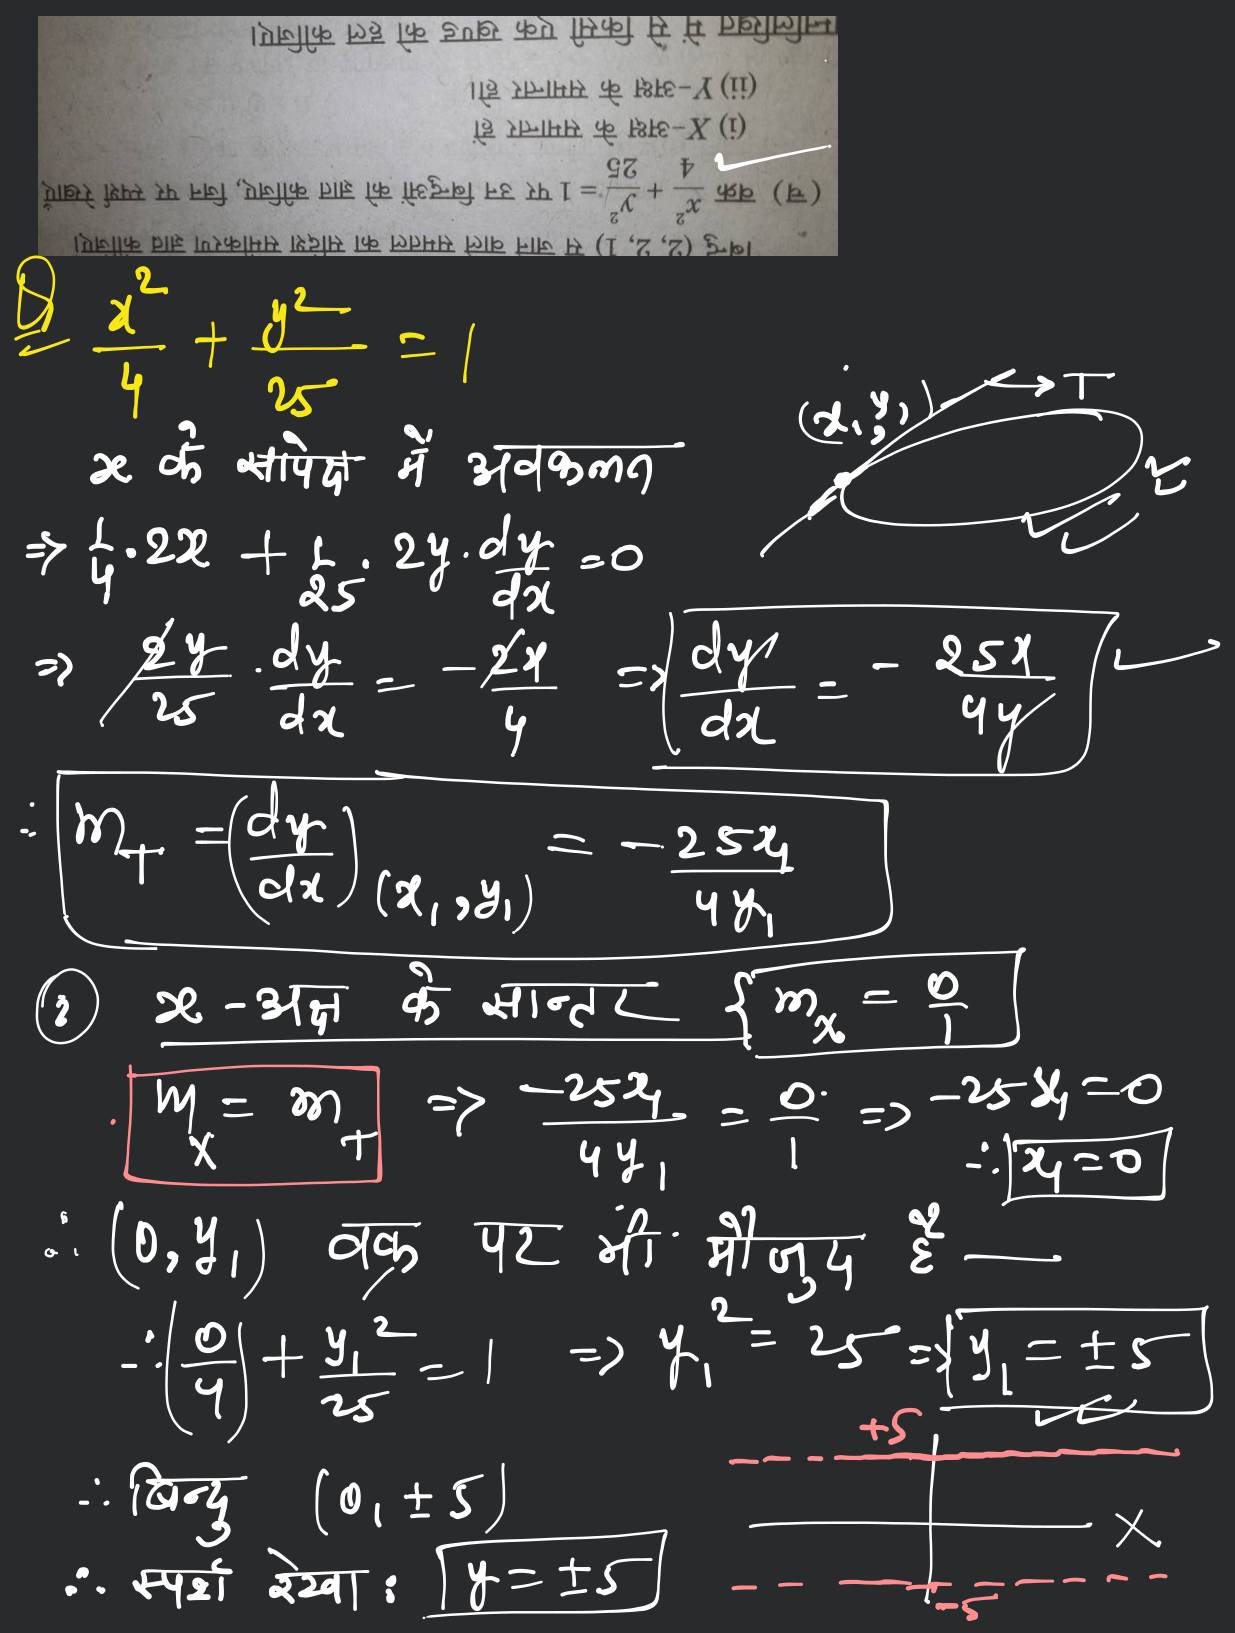 बिन्दु (2, 2, 1) से जाने वाले समतल का सदिश समीकरण ज्ञात कीजिए।
(च) वक्र x²/4 + y²/25 = 1 पर उन बिन्दुओं को ज्ञात कीजिए, जिन पर स्पर्श रेखाएँ
(i) X-अक्ष के समान्तर हों
(ii) Y-अक्ष के समान्तर हों।
में से किसी एक खण्ड को हल कीजिए।
Q x²/4 + y²/25 = 1
(x₁, y₁) → T
x के सापेक्ष में अवकलन
⇒ 1/4 · 2x + 1/25 · 2y · dy/dx = 0
⇒ 2y/25 · dy/dx = -2x/4 ⇒ dy/dx = -25x/4y
∴ m_T = (dy/dx)(x₁, y₁) = -25x₁/4y₁
x-अक्ष के सान्तर { m_x = 0/1
m_x = m_T ⇒ -25x₁/4y₁ = 0/1 ⇒ -25x₁ = 0
∴ x₁ = 0
∴ (0, y₁) वक्र पर भी मौजुद है —
∴ (0/4) + y₁²/25 = 1 ⇒ y₁² = 25 ⇒ y₁ = ±5
+5
∴ बिन्दु (0, ±5)
X
∴ स्पर्श रेखा : y = ±5
-5